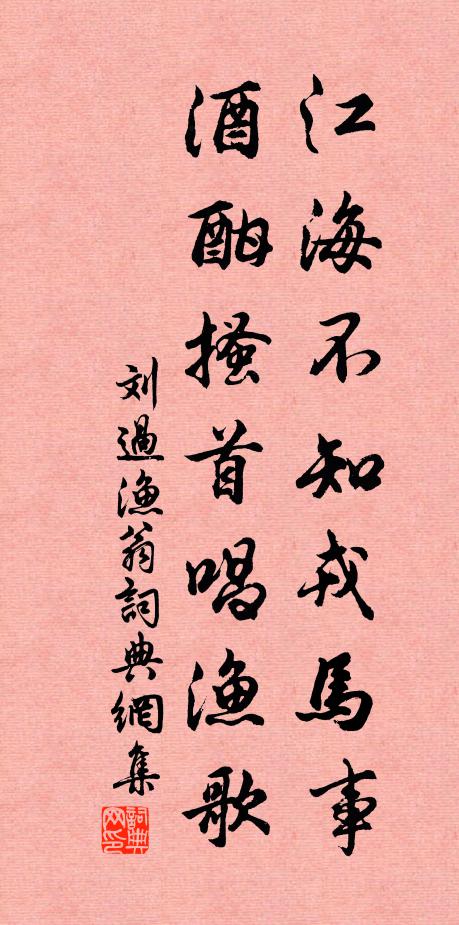 江海不知戎馬事
酒酣搔首唱漁歌
刘過漁翁詞典網集
詞典网印